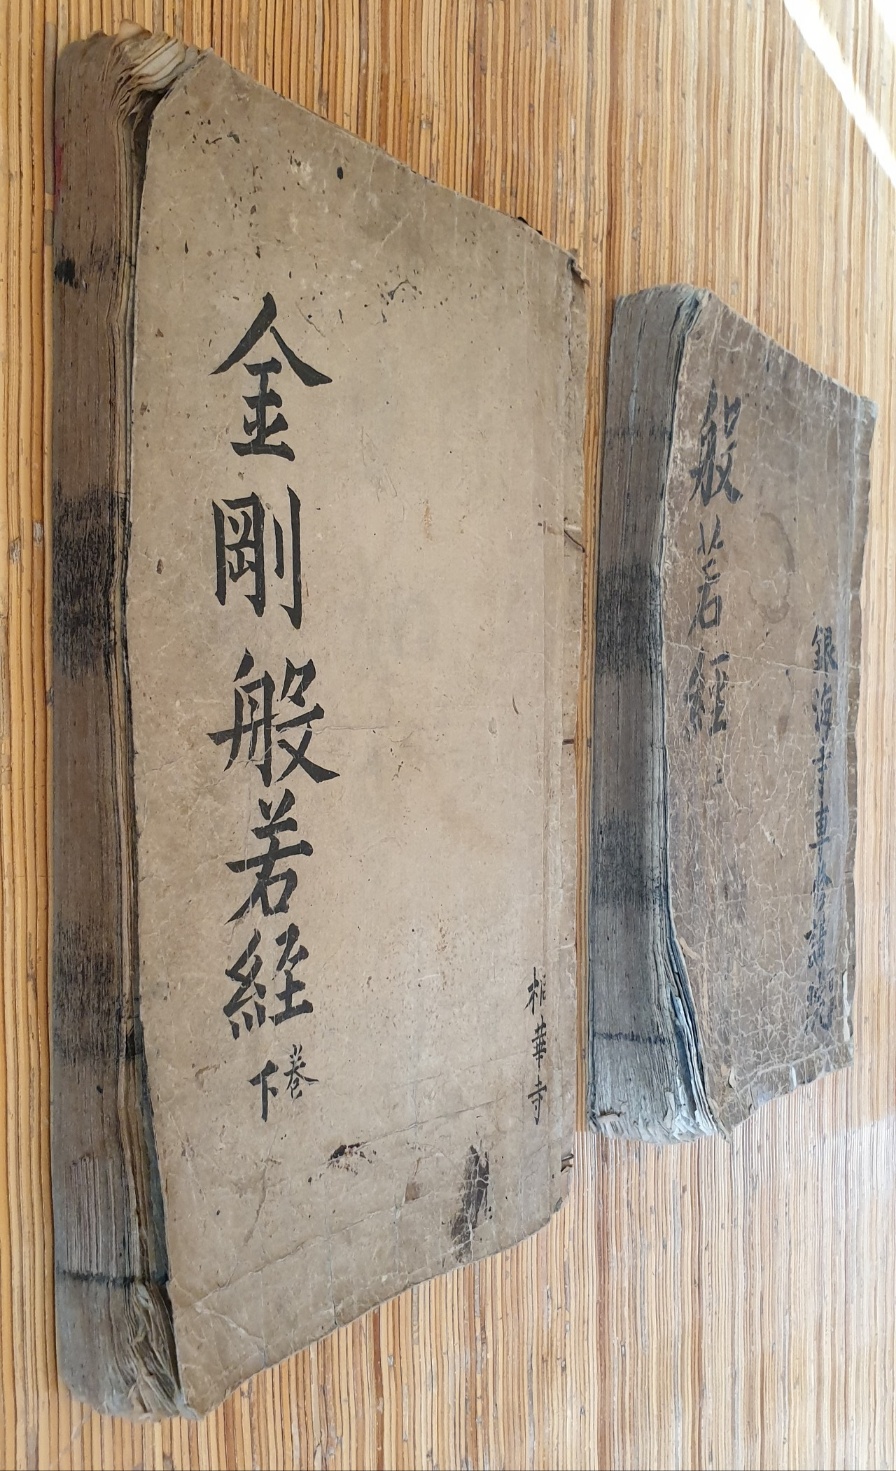 金剛般若経 卷下
桐華寺
般若經
銀海寺專修講院